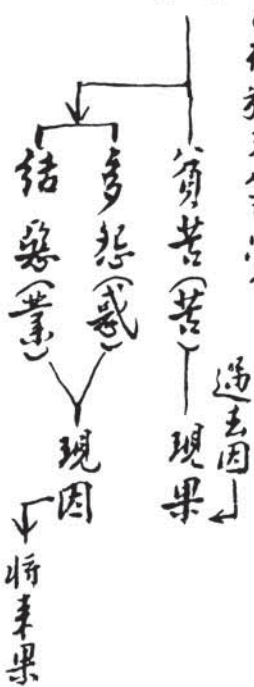 貧苦(苦)
現果
過去因
多怨(惑)
結惡(業)
現因
將來果